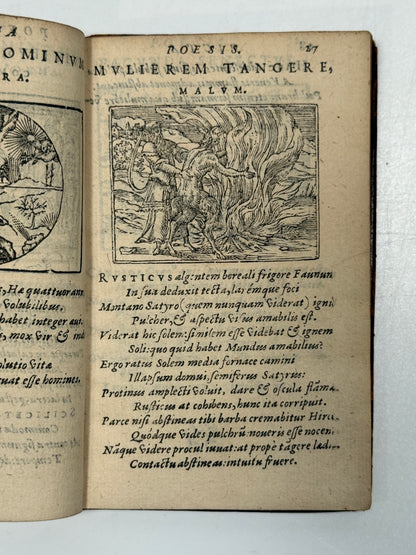 OMINVM
RA.
Hæ quattuor ann
volubilibus,
habet integer aut
mox vir, &
olutio vitæ
uat esse homines.
POESIS. 27
MVLIEREM TANGERE,
MALVM.
RVSTICVS algentem boreali frigore Faunum
In sua deduxit tecta, laremque foci
Montano Satyro (quem nunquam viderat) ignis
Pulcher, & aspectu visus amabilis est.
Viderat hic solem: similem esse videbat & ignem
Soli: quo quid habet Mundus amabilius?
Ergo ratus Solem media fornace camini
Illapsum domui, semiferus Satyrus:
Protinus amplecti voluit, dare & oscula flãmæ
Rusticus at cohibens, hunc ita corripuit.
Parce nisi abstineas tibi barba cremabitur Hirce,
Quódque vides pulchrũ noveris esse nocens
Nãque videre procul iuvat: at prope tãgere lædit.
Contactu abstineas: intuitu fruere.